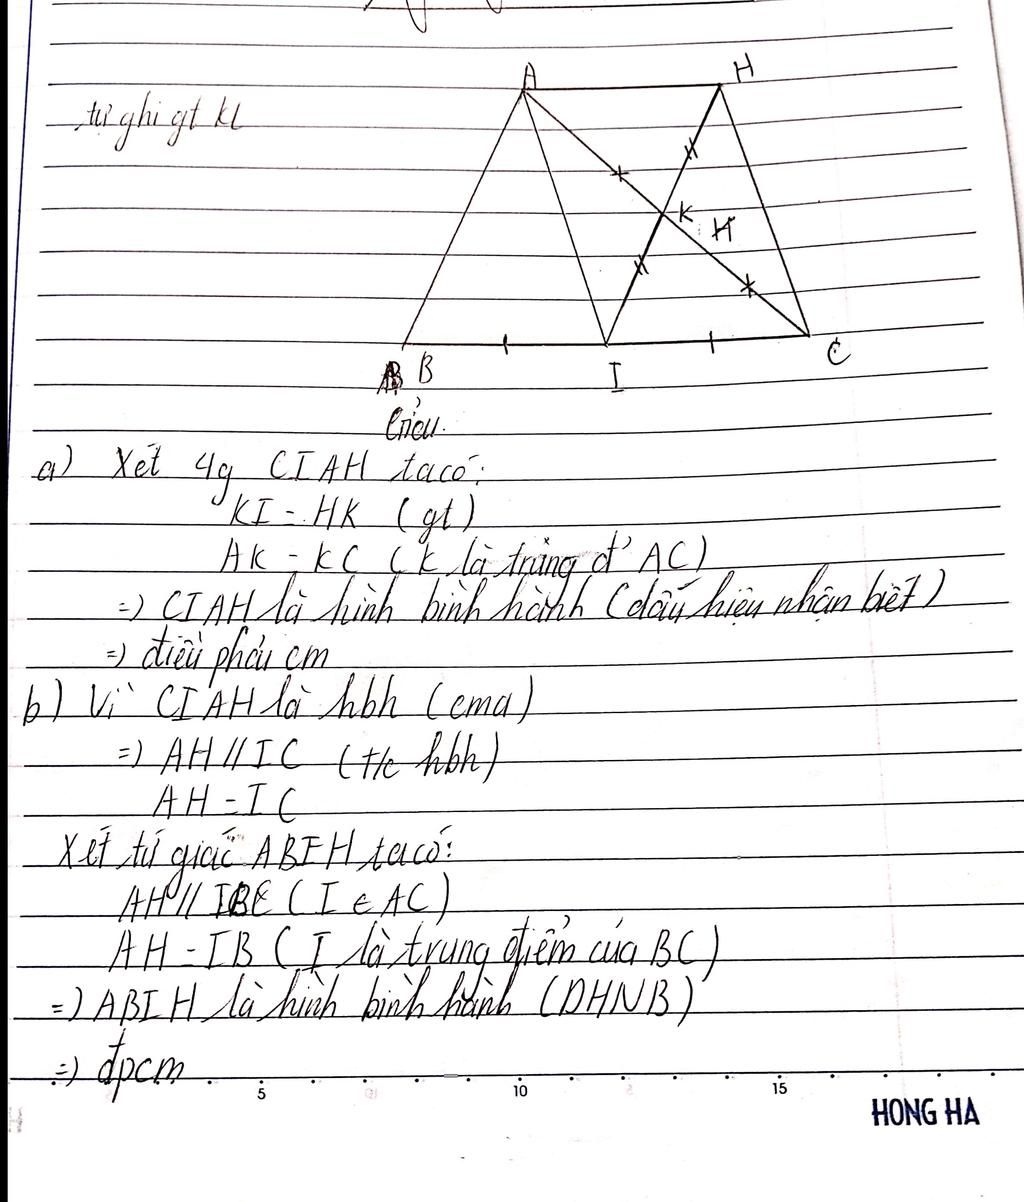 A H
tự ghi gt kl
K
H
B I C
Giải.
a) Xét 4g CIAH ta có:
KI = HK (gt)
AK = KC (K là trung đ' AC)
=) CIAH là hình bình hành (dấu hiệu nhận biết)
=) điều phải cm
b) Vì CIAH là hbh (cma)
=) AH // IC (t/c hbh)
AH = IC
Xét tứ giác ABIH ta có:
AH // IB (I ∈ AC)
AH = IB (I là trung điểm của BC)
=) ABIH là hình bình hành (DHNB)
=) đpcm
5 10 15
HONG HA